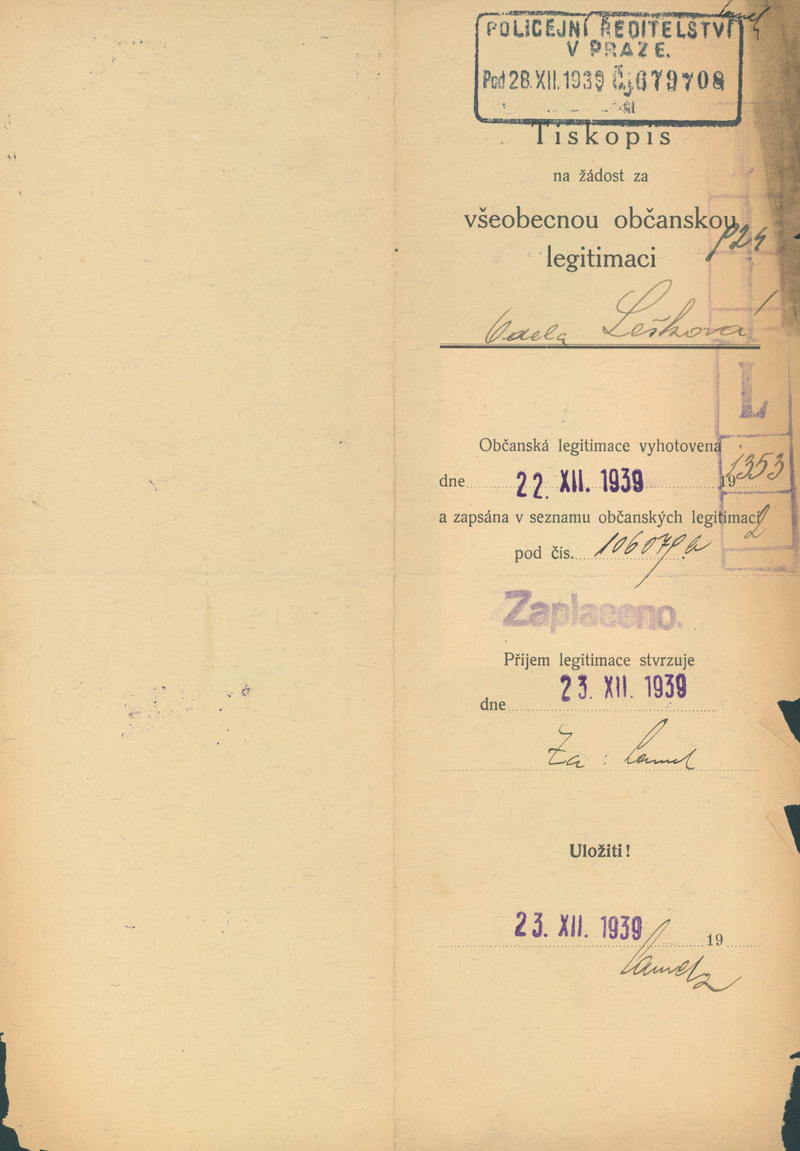 POLICEJNÍ ŘEDITELSTVÍ
V PRAZE.
Pod 28.XII.1939 Čj 679708
Tiskopis
na žádost za
všeobecnou občanskou
legitimaci
924
Lešková
L
Občanská legitimace vyhotovena
dne 22. XII. 1939 19
1353
a zapsána v seznamu občanských legitimací
2
pod čís. 106079a
Zaplaceno.
Příjem legitimace stvrzuje
dne 23. XII. 1939
Za :
Uložiti!
23. XII. 1939 19